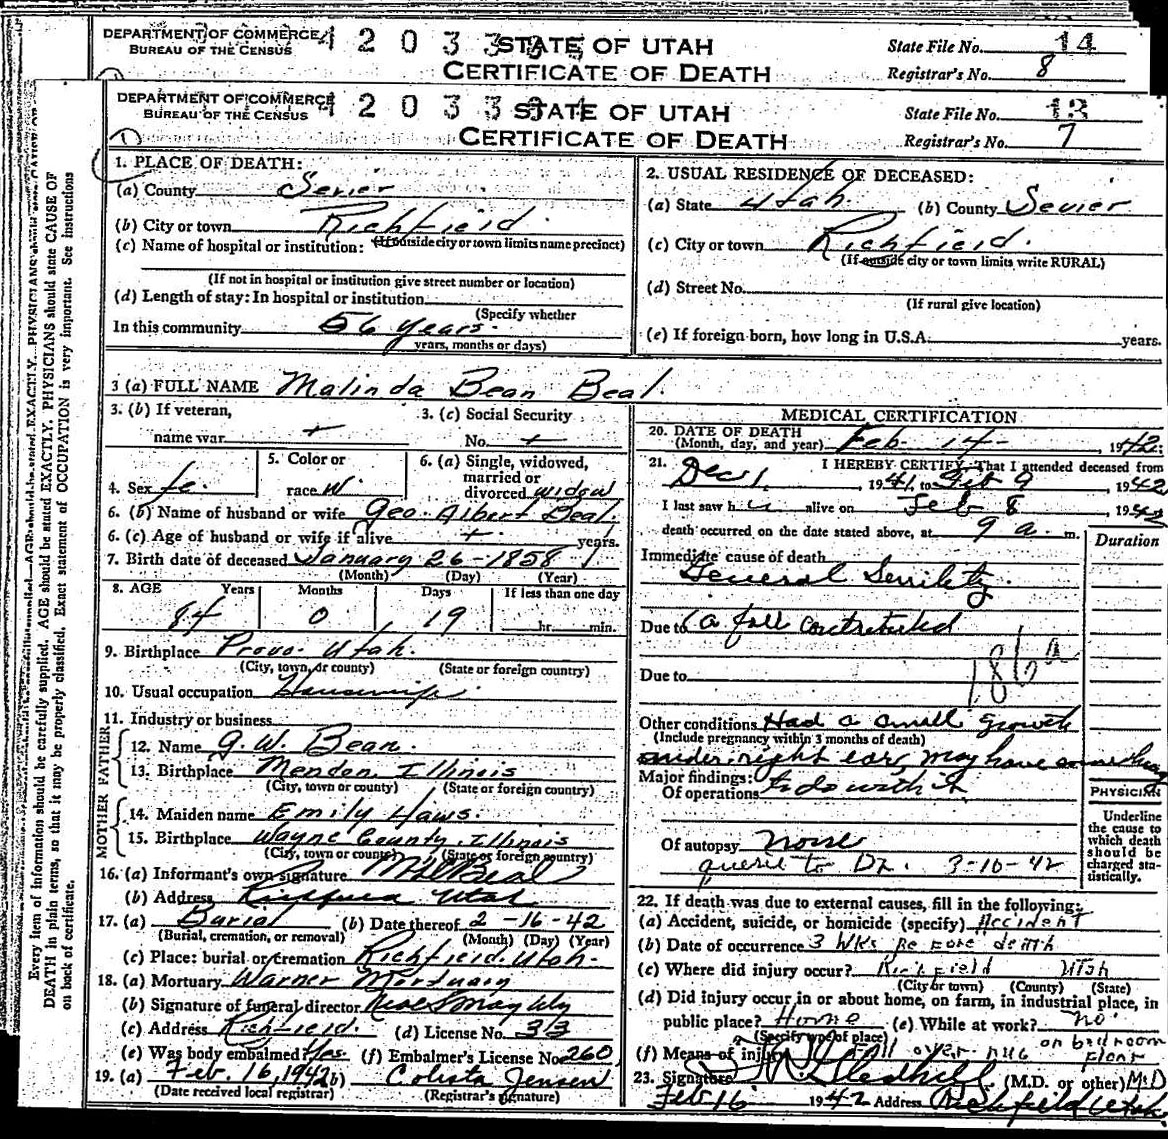 DEPARTMENT OF COMMERCE
BUREAU OF THE CENSUS
STATE OF UTAH
CERTIFICATE OF DEATH
State File No. 14
Registrar's No. 8
DEPARTMENT OF COMMERCE
BUREAU OF THE CENSUS
STATE OF UTAH
CERTIFICATE OF DEATH
State File No. 13
Registrar's No. 7
Every item of information should be carefully supplied. AGE should be stated EXACTLY. PHYSICIANS should state CAUSE OF
DEATH in plain terms, so that it may be properly classified. Exact statement of OCCUPATION is very important. See instructions
on back of certificate.
1. PLACE OF DEATH:
(a) County Sevier
(b) City or town Richfield
(If outside city or town limits name precinct)
(c) Name of hospital or institution:
(If not in hospital or institution give street number or location)
(d) Length of stay: In hospital or institution
(Specify whether
In this community 56 years.
years, months or days)
2. USUAL RESIDENCE OF DECEASED:
(a) State Utah (b) County Sevier
(c) City or town Richfield.
(If outside city or town limits write RURAL)
(d) Street No.
(If rural give location)
(e) If foreign born, how long in U.S.A. years.
3 (a) FULL NAME Malinda Bean Beal.
3. (b) If veteran,
name war +
3. (c) Social Security
No. +
4. Sex fe.
5. Color or
race W.
6. (a) Single, widowed,
married or
divorced widow
6. (b) Name of husband or wife Geo. Albert Beal.
6. (c) Age of husband or wife if alive + years.
7. Birth date of deceased January 26-1858
(Month) (Day) (Year)
8. AGE Years Months Days If less than one day
84 0 19 hr. min.
9. Birthplace Provo. Utah.
(City, town, or county) (State or foreign country)
10. Usual occupation Housewife.
11. Industry or business
FATHER
12. Name G. W. Bean.
13. Birthplace Mendon, Illinois
(City, town or county) (State or foreign country)
MOTHER
14. Maiden name Emily Haws.
15. Birthplace Wayne County, Illinois
(City, town or county) (State or foreign country)
16. (a) Informant's own signature Beal
(b) Address Richfield Utah
17. (a) Burial (b) Date thereof 2-16-42
(Burial, cremation, or removal) (Month) (Day) (Year)
(c) Place: burial or cremation Richfield. Utah.
18. (a) Mortuary Warner Mortuary
(b) Signature of funeral director
(c) Address Richfield. (d) License No. 33
(e) Was body embalmed? Yes (f) Embalmer's License No. 260
19. (a) Feb. 16, 1942 (b) Colista Jensen
(Date received local registrar) (Registrar's signature)
MEDICAL CERTIFICATION
20. DATE OF DEATH
(Month, day, and year) Feb. 14- 1942.
21. I HEREBY CERTIFY, That I attended deceased from
Dec 1, 1941, to Feb 9, 1942
I last saw h alive on Feb 8, 1942
death occurred on the date stated above, at 9 a. m.
Duration
Immediate cause of death
General Senility.
Due to (a fall contributed
186a
Due to
Other conditions Had a small growth
(Include pregnancy within 3 months of death)
under right ear, may have something
Major findings: to do with it
Of operations
PHYSICIAN
Underline
the cause to
which death
should be
charged sta-
tistically.
Of autopsy none
querie to Dr. 3-10-42
22. If death was due to external causes, fill in the following:
(a) Accident, suicide, or homicide (specify) Accident
(b) Date of occurrence 3 wks before death
(c) Where did injury occur? Richfield Utah
(City or town) (County) (State)
(d) Did injury occur in or about home, on farm, in industrial place, in
public place? Home (e) While at work? no
(Specify type of place)
(f) Means of injury Fell over rug on bedroom floor
23. Signature (M.D. or other) M.D
Feb 16 1942 Address Richfield Utah